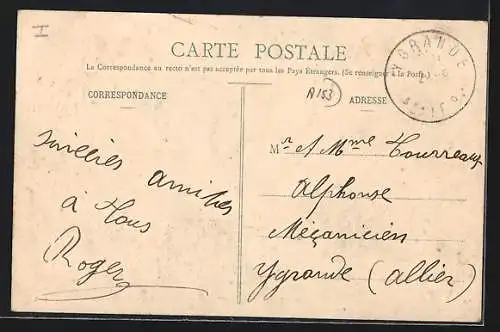 I
CARTE POSTALE
La Correspondance au recto n'est pas acceptée par tous les Pays Etrangers. (Se renseigner à la Poste.)
CORRESPONDANCE
A153
ADRESSE
YGRANDE
sincères amitiés
à Tous
Roger
Mr et Mme Tourreaux
Alphonse
Méçanicien
Ygrande (Allier)